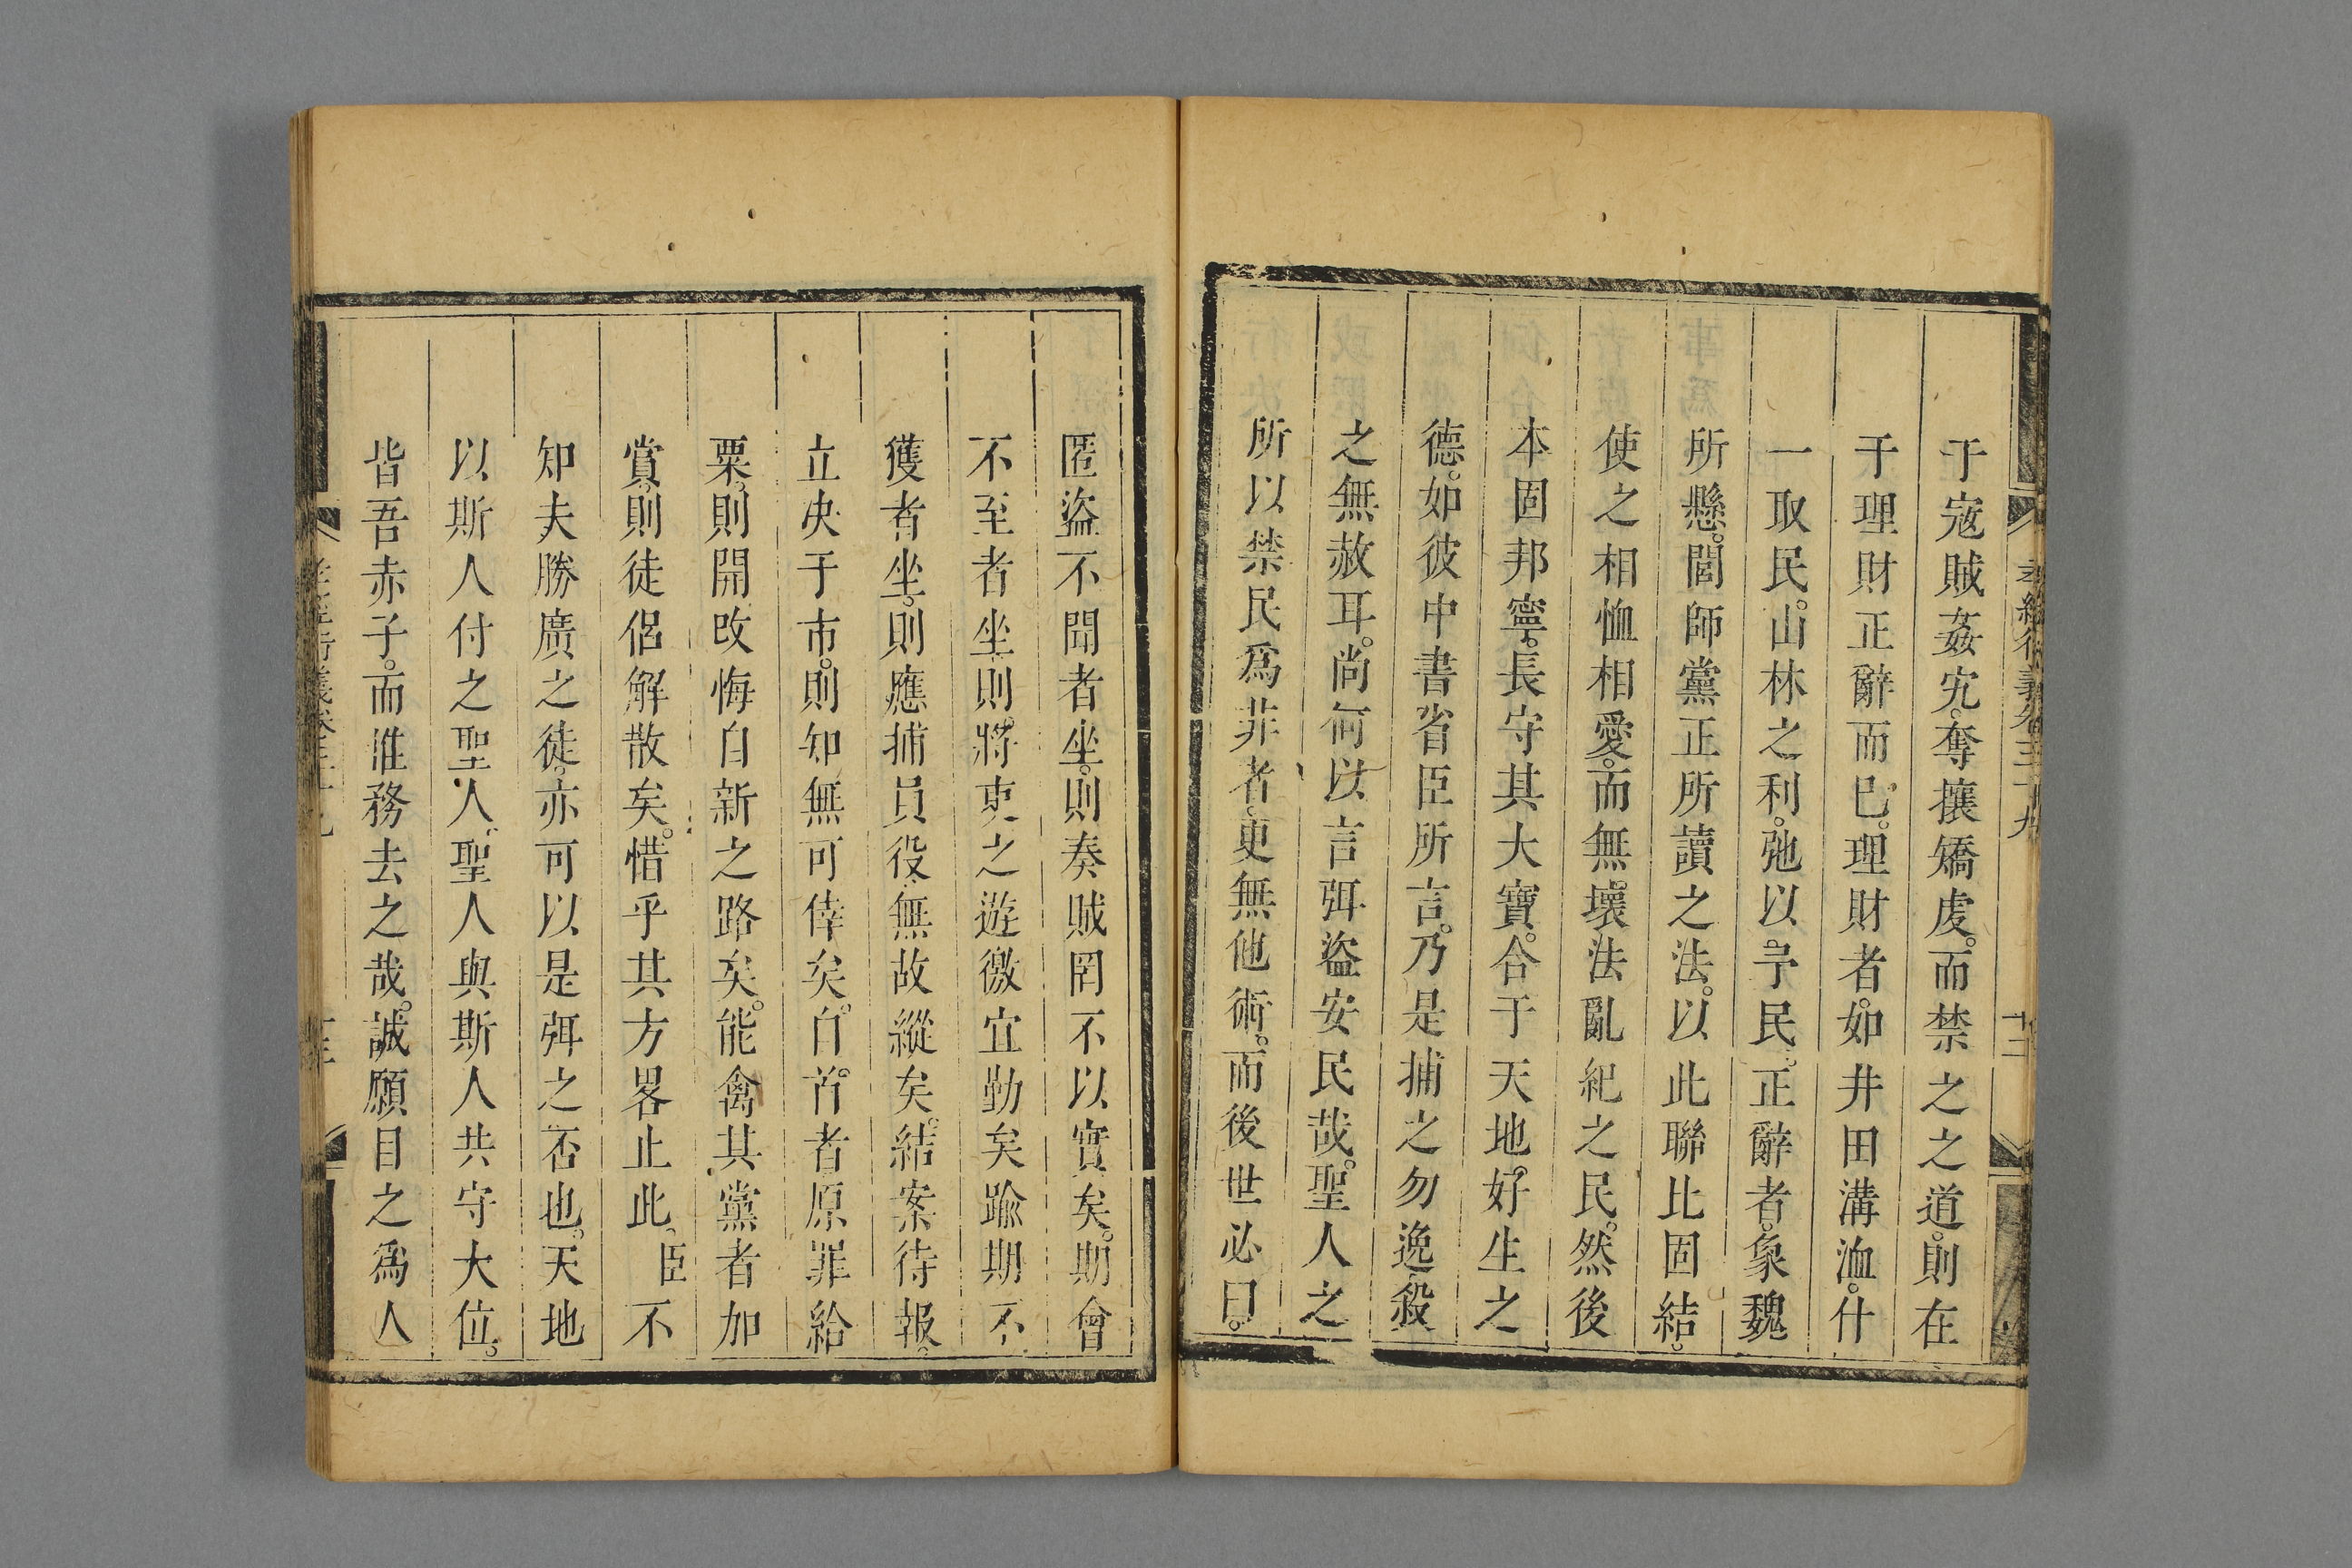 孝經衍義卷三十九
十二
于寇賊姦宄。奪攘矯虔。而禁之之道。則在
于理財正辭而已。理財者。如井田溝洫。什
一取民。山林之利。弛以予民。正辭者。象魏
所懸。閭師黨正所讀之法。以此聯比固結。
使之相恤相愛。而無壞法亂紀之民。然後
本固邦寧。長守其大寶。合于天地好生之
德。如彼中書省臣所言。乃是捕之勿逸。殺
之無赦耳。尚何以言弭盜安民哉。聖人之
所以禁民爲非者。更無他術。而後世必曰。
匿盜不聞者坐。則奏賊罔不以實矣。期會
不至者坐。則將吏之遊徼宜勤矣。踰期不
獲者坐。則應捕員役。無故縱矣。結案待報。
立决于市。則知無可倖矣。自首者原罪給
粟。則開改悔自新之路矣。能禽其黨者加
賞。則徒侶解散矣。惜乎其方畧止此。臣不
知夫勝廣之徒。亦可以是弭之否也。天地
以斯人付之聖人。聖人與斯人共守大位。
皆吾赤子。而誰務去之哉。誠願目之爲人